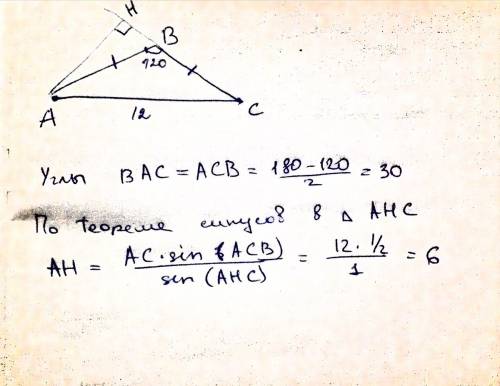 H
B
120
A
12
C
Углы BAC = ACB = (180 - 120)/2 = 30
По теореме синусов в Δ AHC
AH = (AC · sin (ACB))/(sin (AHC)) = (12 · 1/2)/1 = 6